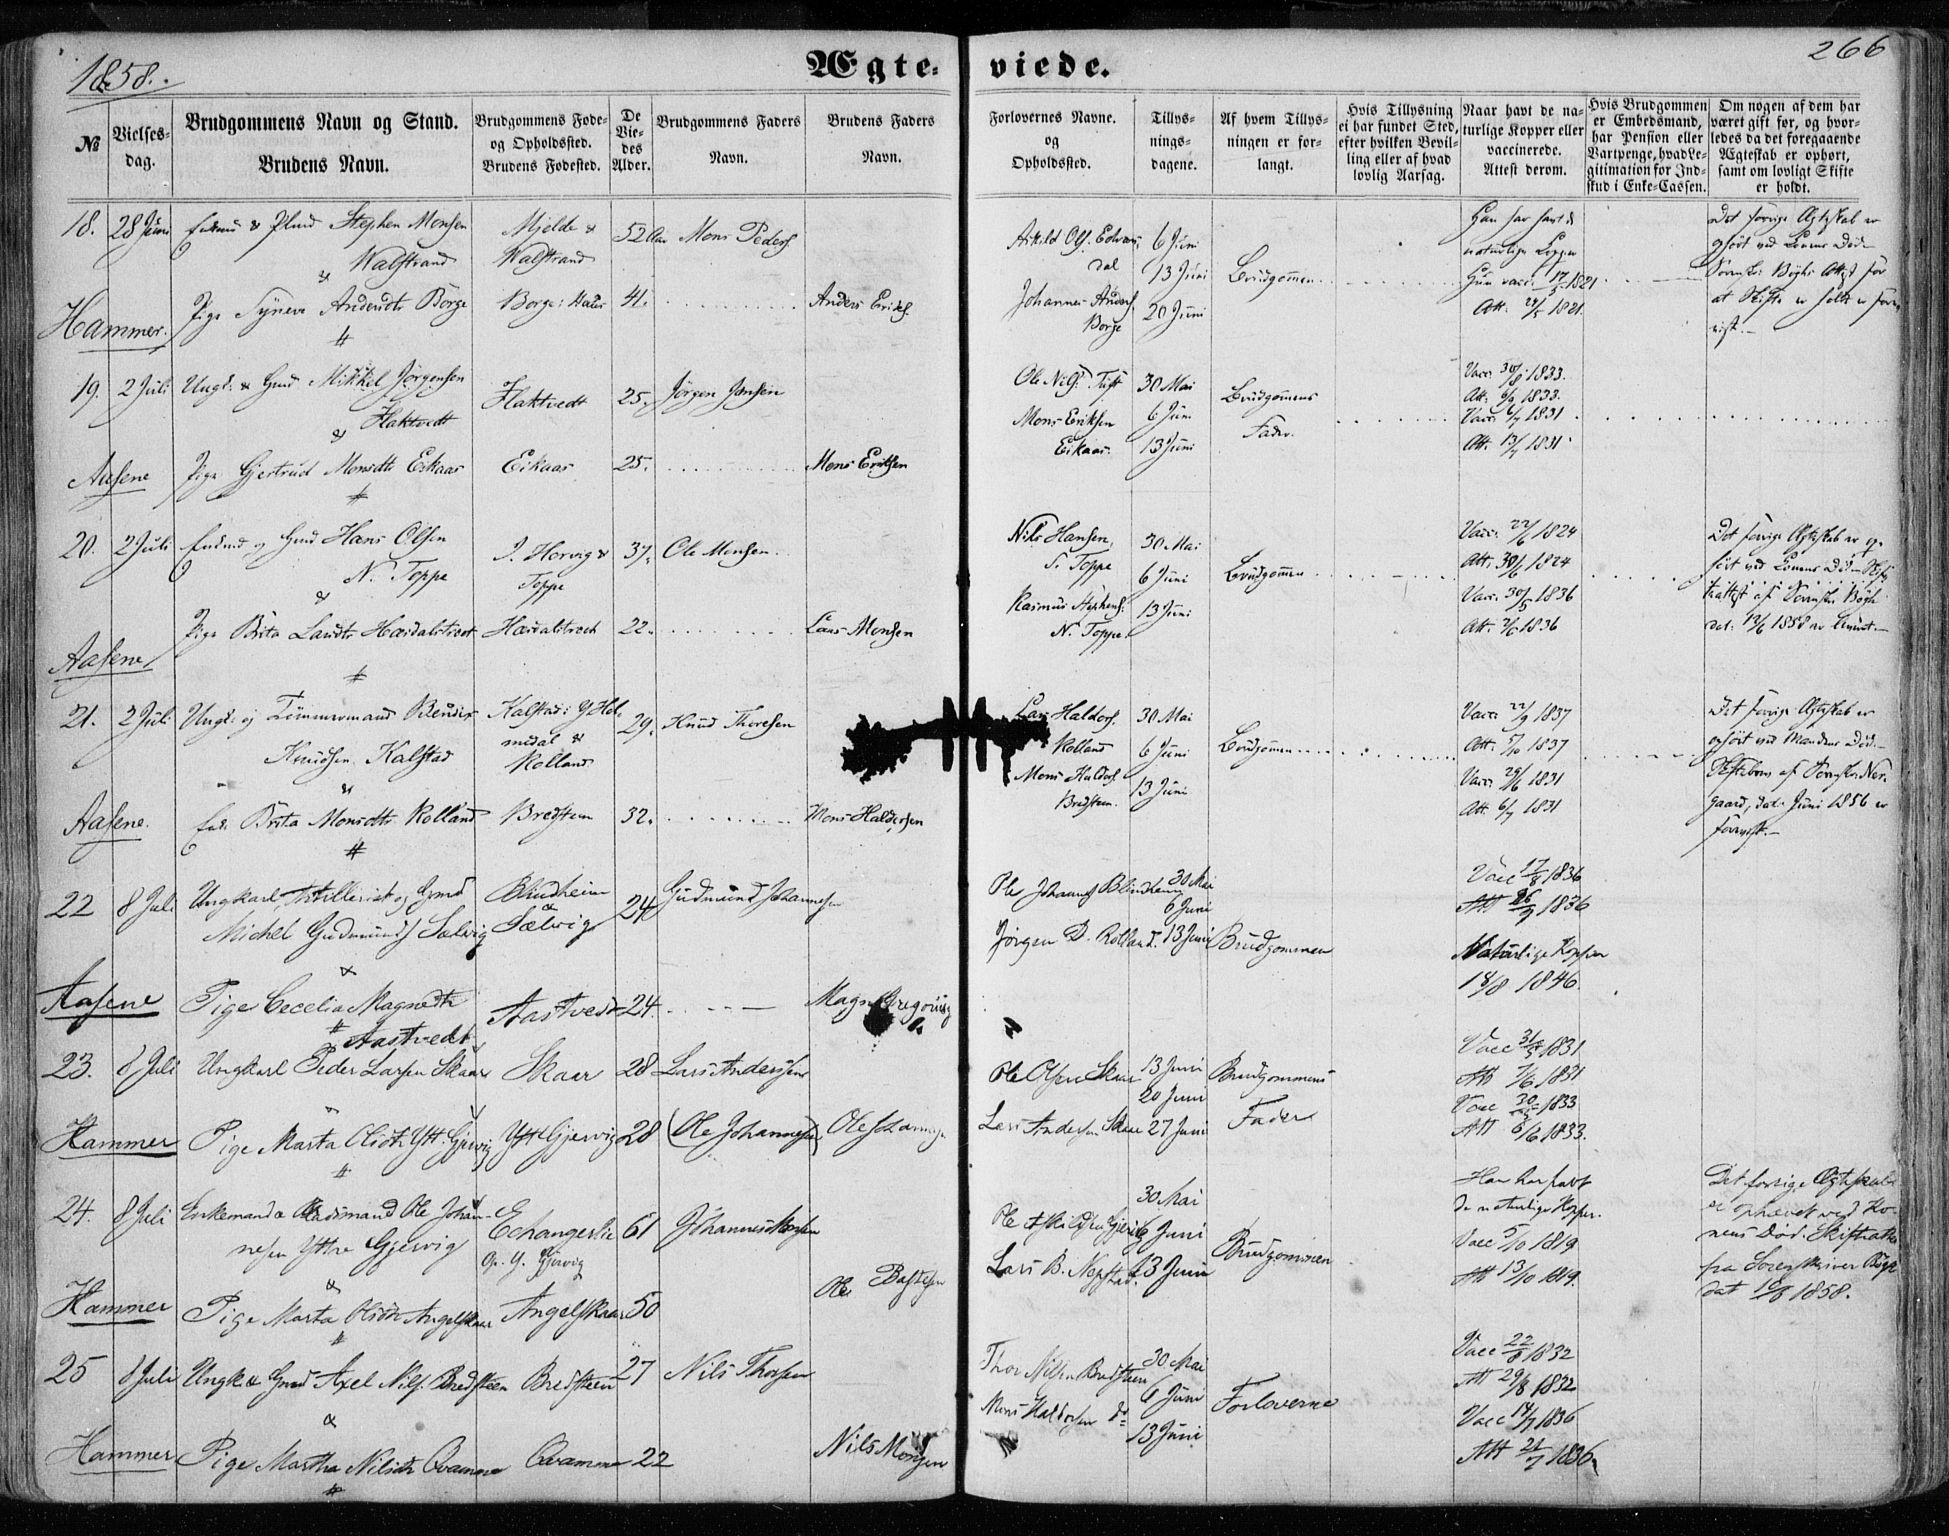 1858.
Ægte-
viede.
266
№
Vielses-
dag.
Brudgommens Navn og Stand.
Brudens Navn.
Brudgommens Føde-
og Opholdssted.
Brudens Fødested.
De
Vie-
des
Alder.
Brudgommens Faders
Navn.
Brudens Faders
Navn.
Forlovernes Navne.
og
Opholdssted.
Tillys-
nings-
dagene.
Af hvem Tillys-
ningen er for-
langt.
Hvis Tillysning
ei har fundet Sted,
efter hvilken Bevil-
ling eller af hvad
lovlig Aarsag.
Naar havt de na-
turlige Kopper eller
vaccinerede.
Attest derom.
Hvis Brudgommen
er Embedsmand,
har Pension eller
Vartpenge, hvad Le-
gitimation for Ind-
skud i Enke-Cassen.
Om nogen af dem har
været gift før, og hvor-
ledes da det foregaaende
Ægteskab er ophørt,
samt om lovligt Skifte
er holdt.
18. 28 Juni Stephen Monsen Mjelde & 52 Aar Mons Peders.
& Walstrand Walstrand
6 Juni
13 Juni Brudgommen
20 Juni
Hammer. Pige Synneve Andersdtr Borge Borge: Haus 41. Anders Eriks.
Johannes Anders.
Borge
Han har havt d
naturlige Kopper
Hun vacc. 17/5 1821
Att. 24/5 1821.
19. 2 Juli Ungk: & Gmd Mikkel Jørgensen Flaktvedt 25. Jørgen Jensen
Flaktvedt
&
Aasene Pige Gjertrud Monsdtr Eikaas Eikaas 25. Mons Eriksen
Ole Nils. Tuft 30 Mai Brudgommens
Mons Eriksen 6 Juni Fader.
Eikaas. 13 Juni
Vacc: 30/8 1833.
Att. 6/9 1833.
Vacc: 6/7 1831
Att. 13/7 1831
20. 2 Juli Enkmd og Gmd Hans Olsen I. Horvig & 37. Ole Monsen.
N. Toppe Toppe
&
Pige Brita Larsdtr Hardalstræt Hardalstræt 22. Lars Monsen
Aasene
Nils Hansen, 30 Mai
T. Toppe 6 Juni Brudgommen
Rasmus Stephens. 13 Juni
N. Toppe
Vacc. 22/6 1824
Att. 30/6 1824
Vacc. 30/5 1836
Att. 7/6 1836
Det forrige Ægteskab er op-
hørt ved Konens Død. Skif-
teattest af Sorenskr. Bøgh
dat. 13/6 1858 er leveret.
21. 2 Juli Ungk: og Tømmermand Bendix Kalstad: Y. Hol- 29. Knud Thoresen
Knudsen Kalstad medal &
& Rolland
Aasene. Enke Brita Monsdtr Rolland Bredsteen 32. Mons Haldorsen
Lars Haldors. 30 Mai
Rolland 6 Juni Brudgommen
Mons Haldors. 13 Juni
Bredsteen.
Vacc: 22/9 1837
Att. 5/10 1837
Vacc: 29/6 1831
Att. 6/7 1831
Det forrige Ægteskab er
ophørt ved Mandens Død.
Skiftebrev af Sorenskr. Ner-
gaard, dat. Juni 1856 er
forevist.
22 8 Juli Ungkarl, Artillerist og Gmd Blindheim 24 Gudmund Johannesen
Michel Gudmunds. Sælvig & Sælvig
&
Aasene Pige Cecelia Magnedtr Aastvedt 24. Magne Gregorius.
Aastvedt
Ole Johannes. Blindheim 30 Mai
6 Juni
Jørgen D. Rolland. 13 Juni Brudgommen
Vacc 17/8 1836
Att 26/9 1836
Naturlige Kopper
18/8 1846.
23. 8 Juli Ungkarl Peder Larsen Skaar Skaar 28 Lars Anderssen
Hammer Pige Marta Olsdtr Ytt. Gjervig Ytt Gjervig 28 (Ole Johannesen) Ole Johannesen
Ole Olsen Skaar 13 Juni Brudgommens
20 Juni
Lars Andersen Skaar 27 Juni Fader
Vacc 31/5 1831
Att 7/6 1831
Vacc 30/5 1833
Att 6/6 1833.
24. 8 Juli Enkemand & Gaardmand Ole Johan- Echangerlie 61 Johannes Monsen
nesen Yttre Gjervig Op. Y. Gjervig
&
Hammer Pige Marta Olsdtr Angelskaar Angelskaar 50 Ole Bastesen
30 Mai
6 Juni
Lars B. Nepstad. 13 Juni Brudgommen
Han har havt
de naturlige Kopper.
Vacc 5/10 1819
Att 13/10 1819.
Det forrige Ægteskab
er ophævet ved Ko-
nens Død. Skifteattest
fra Sorenskriver Bøgh
dat 10/6 1858.
25 8 Juli Ungk & Gmd Axel Nils. Bredsteen Bredsteen 27 Nils Thorsen
&
Hammer Pige Martha Nilsdtr Qvamme Qvamme 22 Nils Monsen
Thor Nilsen Bredsteen 30 Mai
6 Juni Forloverne
Mons Haldorsen do 13 Juni
Vacc 22/8 1832
Att 29/8 1832
Vacc 14/7 1836
Att 21/7 1836